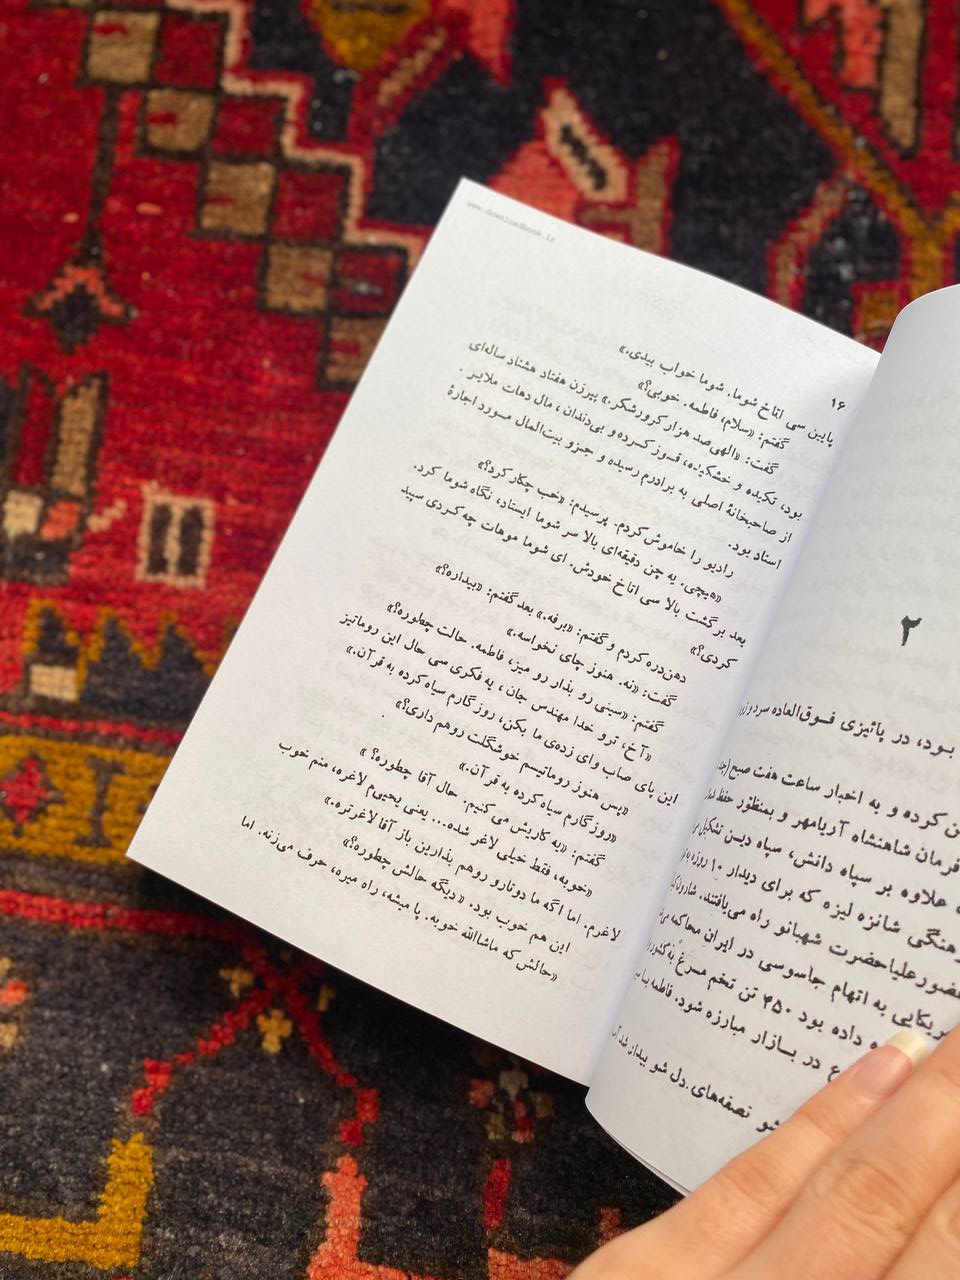 www.downloadbook.ir
۱۶
پایین سی اتاخ شوما. شوما خواب بیدی.»
گفتم: «سلام، فاطمه. خوبی؟»
گفت: «الهی صد هزار کرور شکر.» پیرزن هفتاد هشتاد ساله‌ای
بود، تکیده و خشکیده، قوز کرده و بی‌دندان، مال دهات ملایر.
از صاحبخانهٔ اصلی به برادرم رسیده و جزو بیت‌المال مورد اجارهٔ
استاد بود.
رادیو را خاموش کردم. پرسیدم: «خب چکار کرد؟»
«هیچی. یه چن دقیقه‌ای بالا سر شوما ایستاد، نگاه شوما کرد.
بعد برگشت بالا سی اتاخ خودش. ای شوما موهات چه کردی سپید
کردی؟»
دهن‌دره کردم و گفتم: «برفه.» بعد گفتم: «بیداره؟»
گفت: «نه. هنوز چای نخواسه.»
گفتم: «سینی رو بذار رو میز، فاطمه. حالت چطوره؟»
«آخ، ترو خدا مهندس جان، یه فکری سی حال این روماتیز
این پای صاب وای زده‌ی ما یکن، روزگارم سیاه کرده به قرآن.»
«پس هنوز روماتیسم خوشگلت رو هم داری؟»
«روزگارم سیاه کرده به قرآن.»
گفتم: «یه کاریش می‌کنیم. حال آقا چطوره؟»
«خوبه، فقط خیلی لاغر شده... یعنی یحیی‌م لاغره، منم خوب
لاغرم. اما اگه ما دوتارو روهم بذارین باز آقا لاغرتره.»
این هم خوب بود. «دیگه حالش چطوره؟»
«حالش که ماشاالله خوبه. پا میشه، راه میره، حرف می‌زنه. اما
۲
بود، در پائیزی فوق‌العاده سرد و
ن کرده و به اخبار ساعت هفت صبح
فرمان شاهنشاه آریامهر و بمنظور حفظ
علاوه بر سپاه دانش، سپاه دین تشکیل
هنگی شانزه لیزه که برای دیدار ۱۰ روزه
حضور علیاحضرت شهبانو راه می‌یافتند.
ریکایی به اتهام جاسوسی در ایران محاکمه
ه داده بود ۴۵۰ تن تخم مرغ به کشور
ع در بازار مبارزه شود. فاطمه با
شو نصفه‌های دل شو بیدار شد